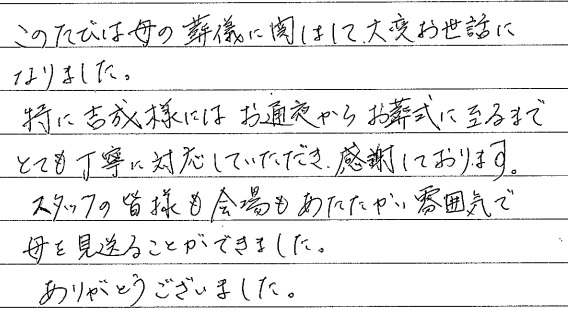 このたびは母の葬儀に関しまして、大変お世話に
なりました。
特に吉成様には お通夜から お葬式に至るまで
とても丁寧に対応していただき、感謝しております。
スタッフの皆様も会場もあたたかい雰囲気で
母を見送ることができました。
ありがとうございました。